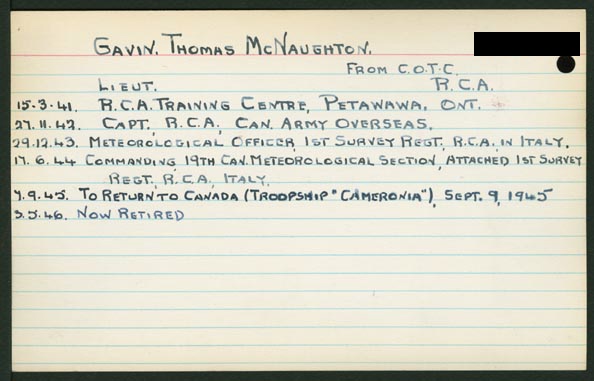 GAVIN. THOMAS MCNAUGHTON.
FROM C.O.T.C.
LIEUT. R.C.A.
15.3.41. R.C.A. TRAINING CENTRE, PETAWAWA, ONT.
27.11.42. CAPT., R.C.A., CAN. ARMY OVERSEAS.
29.12.43. METEOROLOGICAL OFFICER 1ST SURVEY REGT., R.C.A. IN ITALY.
17.6.44 COMMANDING 19TH CAN. METEOROLOGICAL SECTION, ATTACHED 1ST SURVEY
REGT., R.C.A., ITALY.
7.9.45. TO RETURN TO CANADA (TROOPSHIP "CAMERONIA"), SEPT. 9, 1945
3.5.46. NOW RETIRED